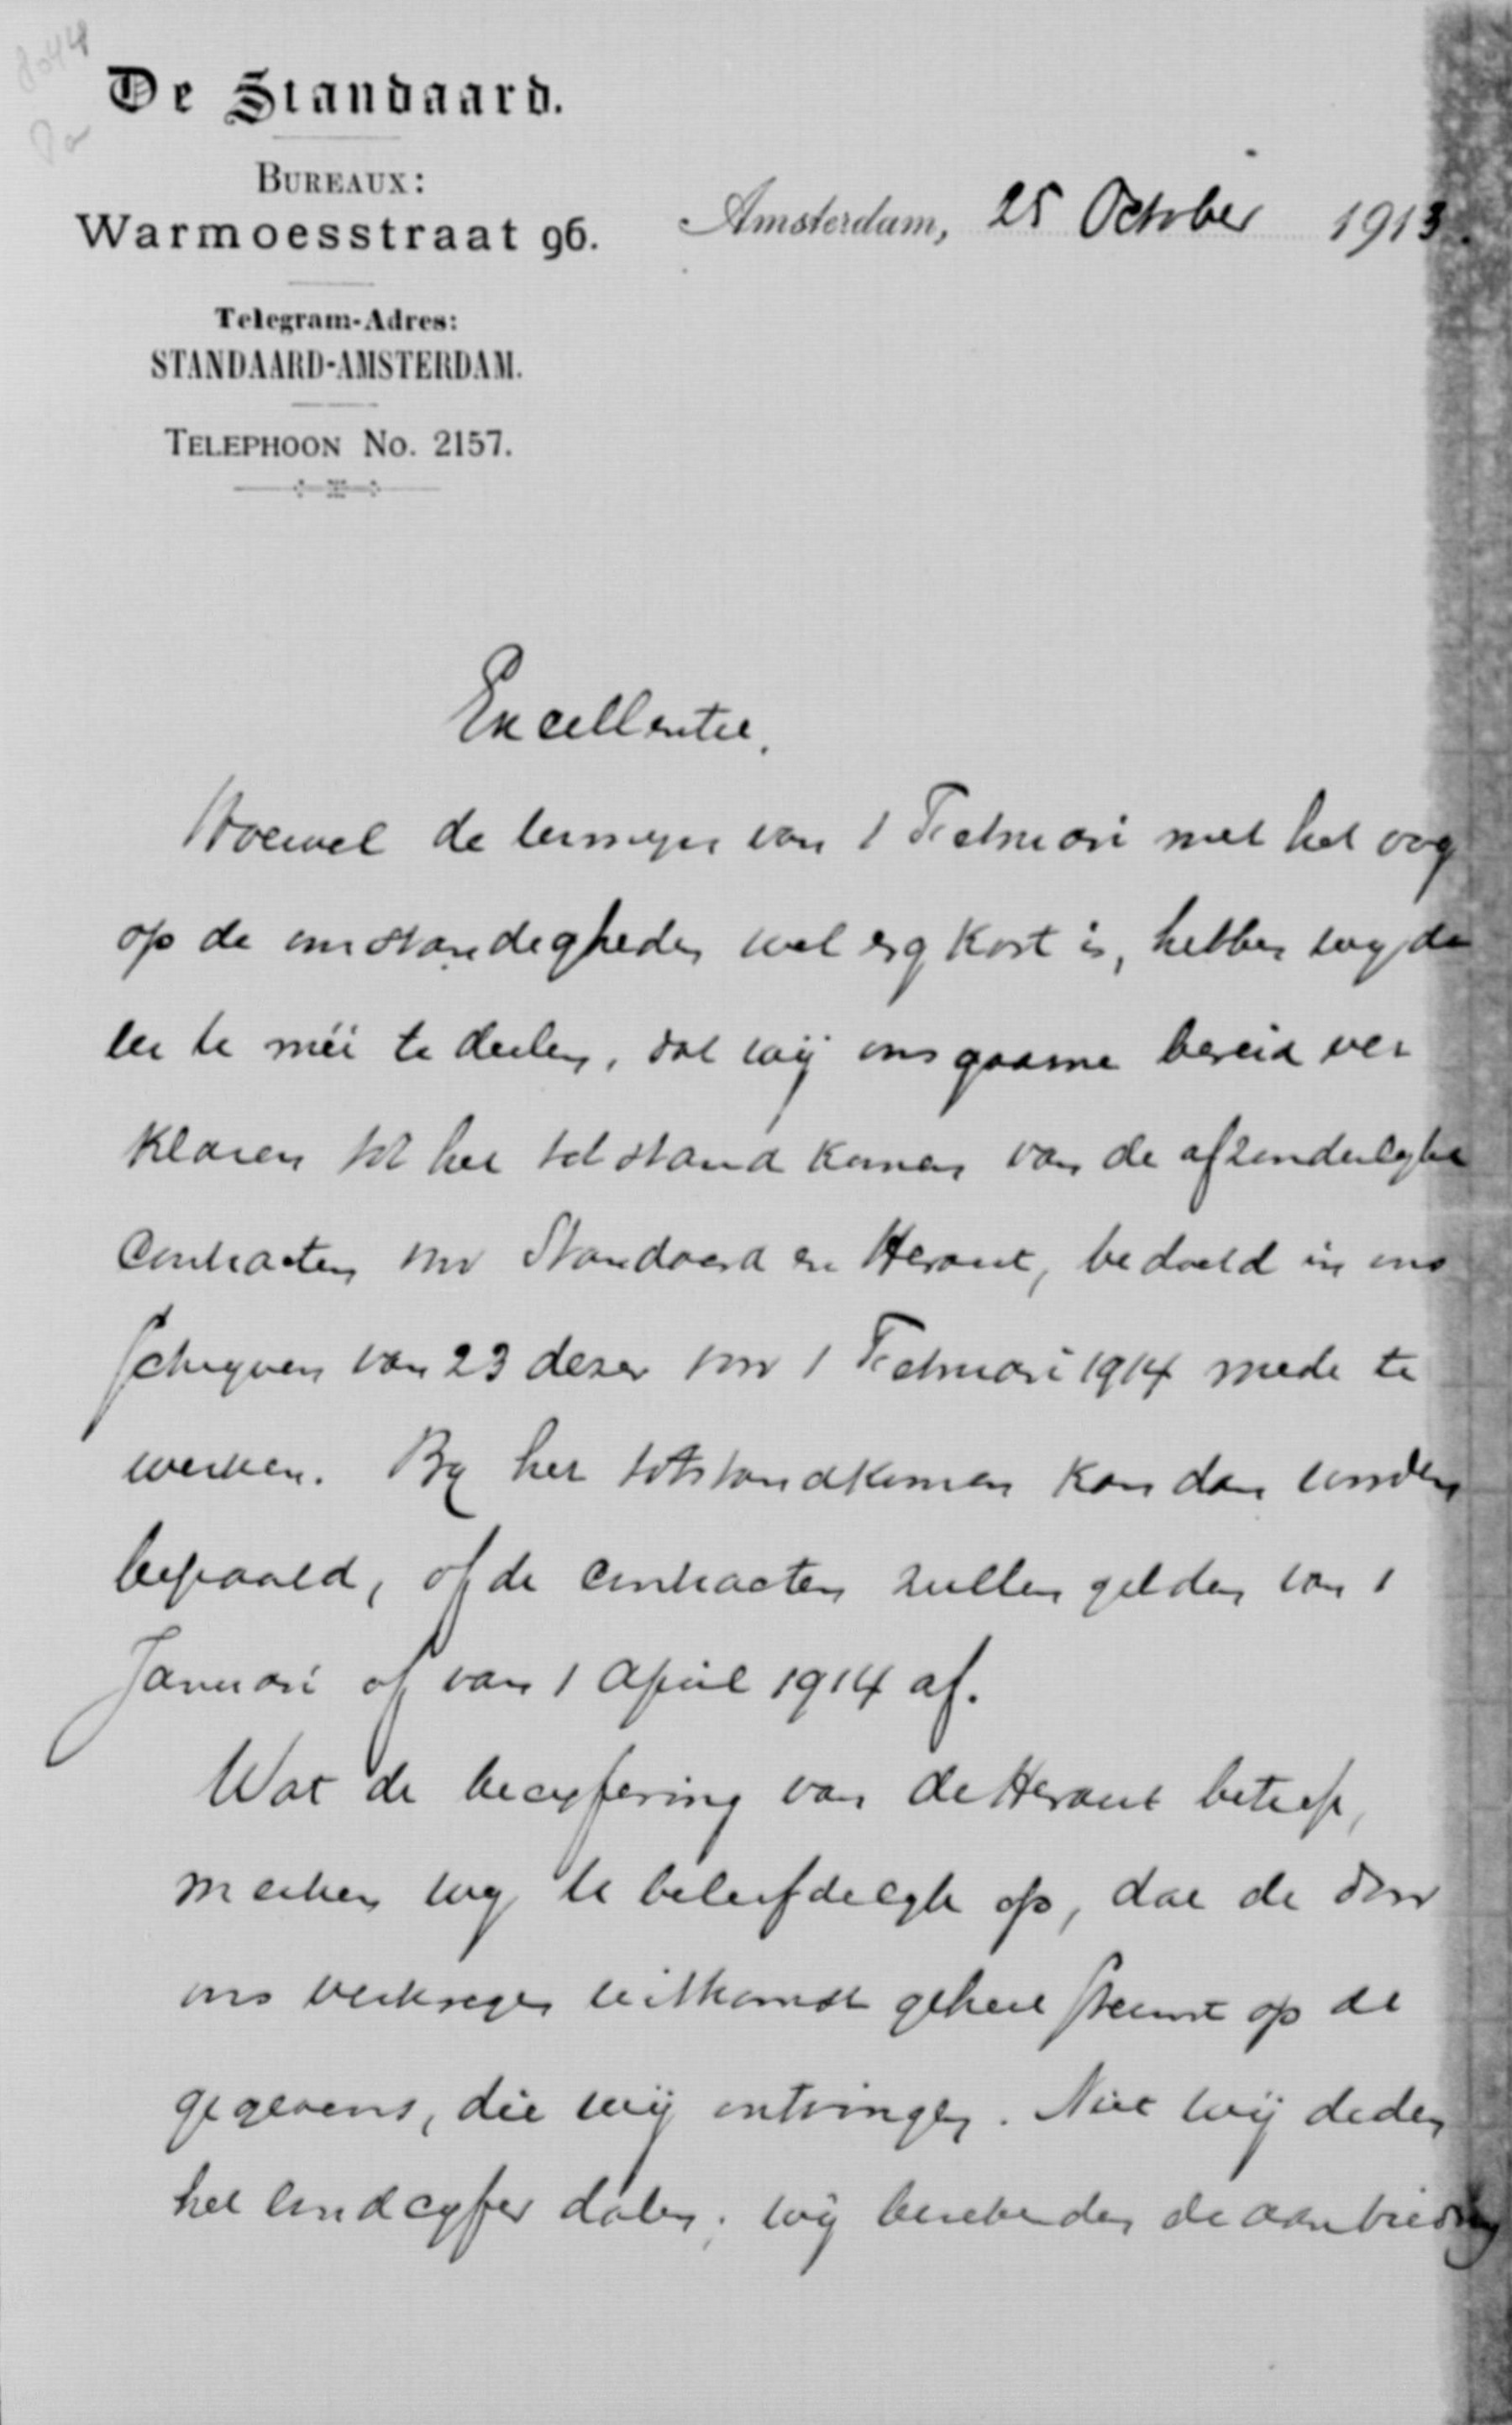 8044
De Standaard.
BUREAUX:
Warmoesstraat 96.
Amsterdam, 25 October 1913.
Telegram-Adres:
STANDAARD-AMSTERDAM.
TELEPHOON No. 2157.
Excellentie,
Hoewel de termijn van 1 Februari met het oog
op de omstandigheden wel erg kort is, hebben wij de
eer U mêe te deelen, dat wij ons gaarne bereid ver
klaren tot het tot stand komen van de afzonderlijke
Contracten voor Standaard en Heraut, bedoeld in ons
schrijven van 23 dezer voor 1 Februari 1914 mede te
werken. By het totstandkomen kan dan worden
bepaald, of de contracten zullen gelden van 1
Januari of van 1 April 1914 af.
Wat de becyfering van de Heraut betreft,
merken wij U beleefdelyk op, dat de door
ons verkregen uitkomst geheel steunt op de
gegevens, die wij ontvingen. Niet wij deden
het eindcyfer dalen; wij berekenden de aanbieding